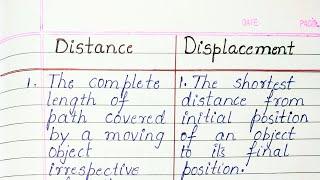 DATE PAGE
Distance Displacement
1. The complete
length of
path covered
by a moving
object
irrespective
1. The shortest
distance from
initial position
of an object
to its final
position.